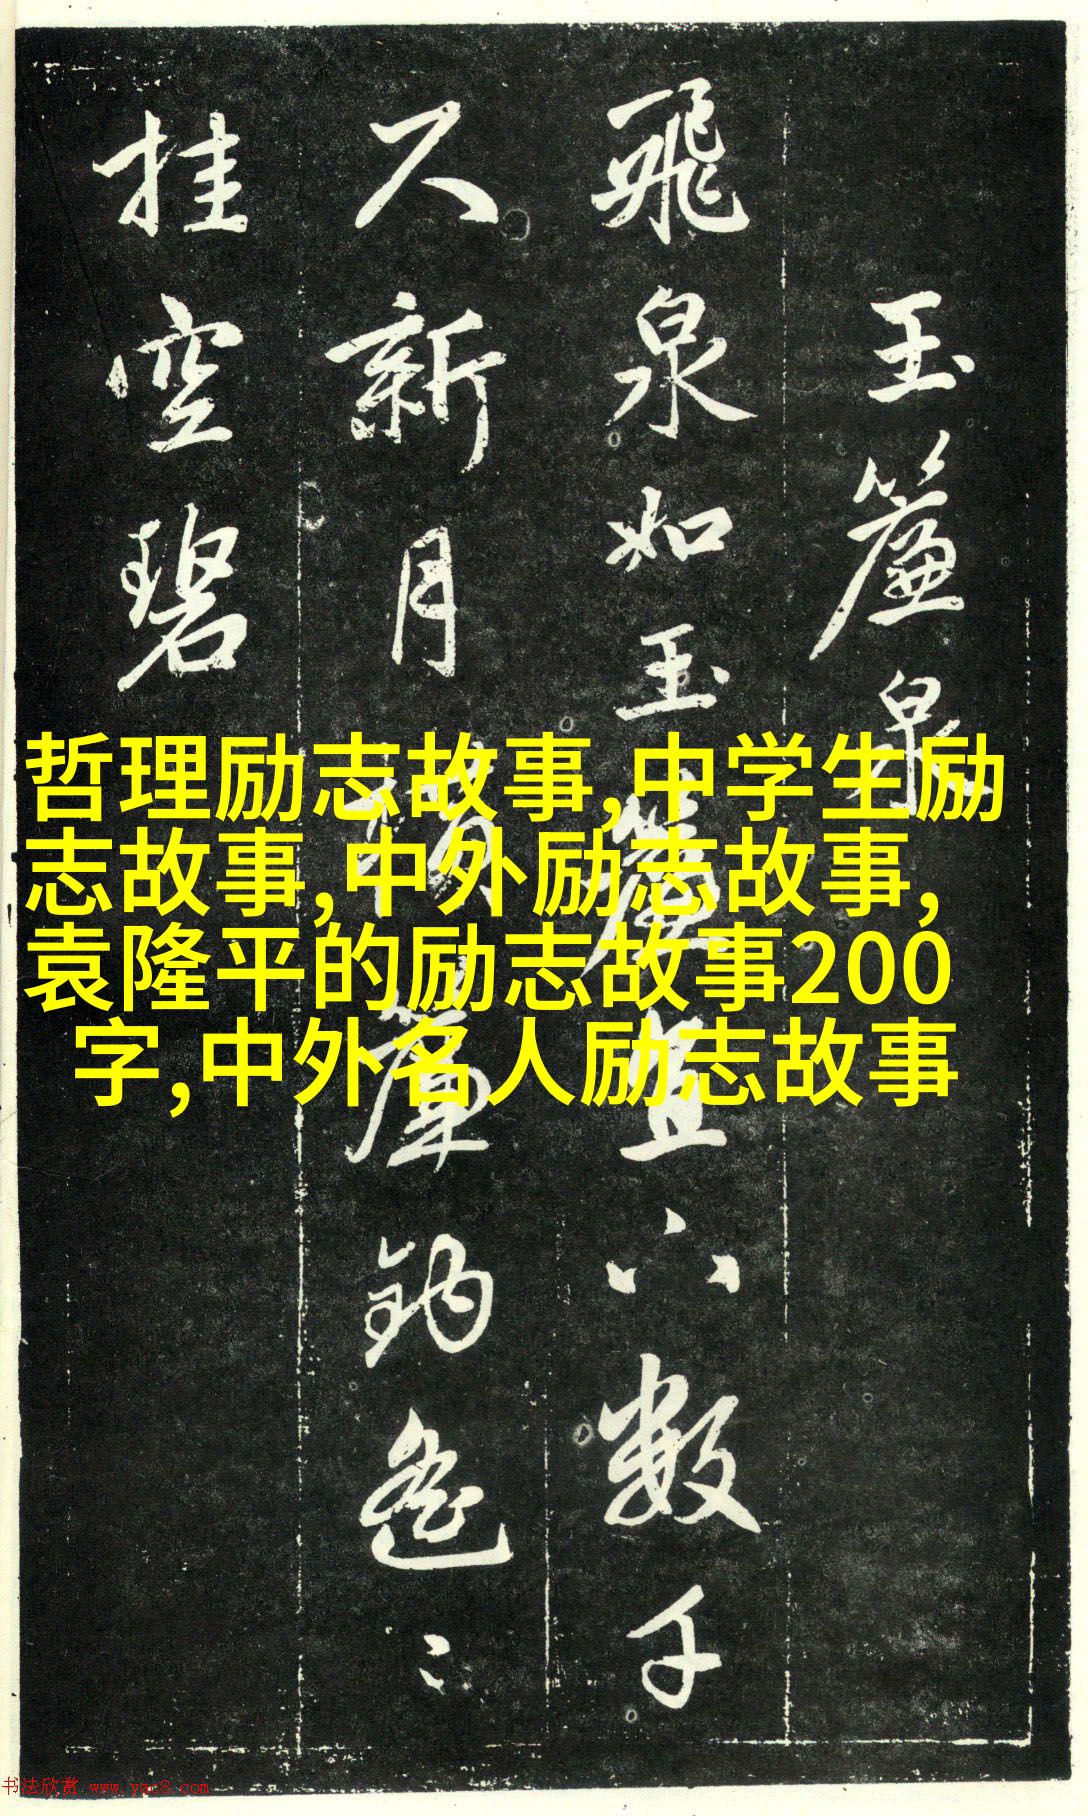 玉簾泉
飛泉如玉簾直下數千
尺新月橫簾鉤遙〻
挂空碧
哲理励志故事,中学生励
志故事,中外励志故事,
袁隆平的励志故事200
字,中外名人励志故事
书法欣赏 www.yac8.com